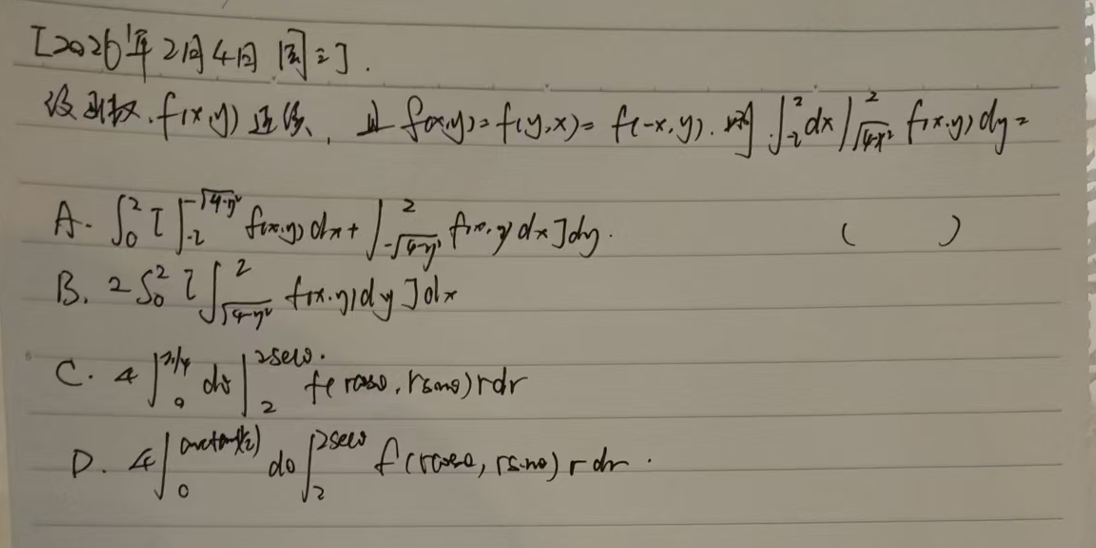 [2026年2月4日 周三].
设函数.f(x,y)连续、且 f(x,y)=f(y,x)=f(-x,y).则∫_{-2}^{2}dx∫_{√(4-x²)}^{2} f(x,y)dy=
A. ∫_0^2 [∫_{-2}^{-√(4-y²)} f(x,y)dx+∫_{-√(4-y²)}^{2} f(x,y)dx]dy. ( )
B. 2∫_0^2 [∫_{√(4-y²)}^{2} f(x,y)dy]dx
C. 4∫_0^{π/4} dθ∫_2^{2secθ} f(rcosθ,rsinθ)rdr
D. 4∫_0^{arctan(1/2)} dθ∫_2^{2secθ} f(rcosθ,rsinθ)rdr.